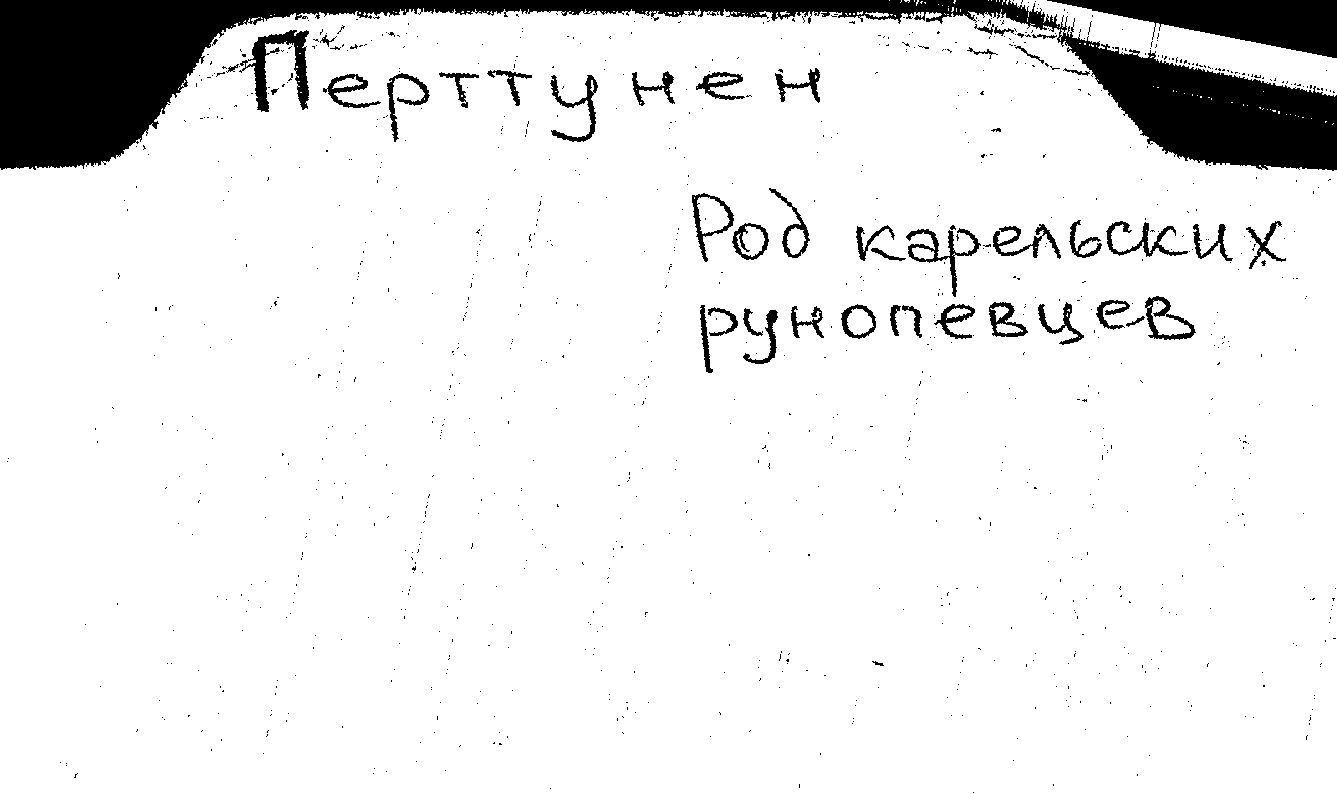 Перттунен
Род карельских
рунопевцев